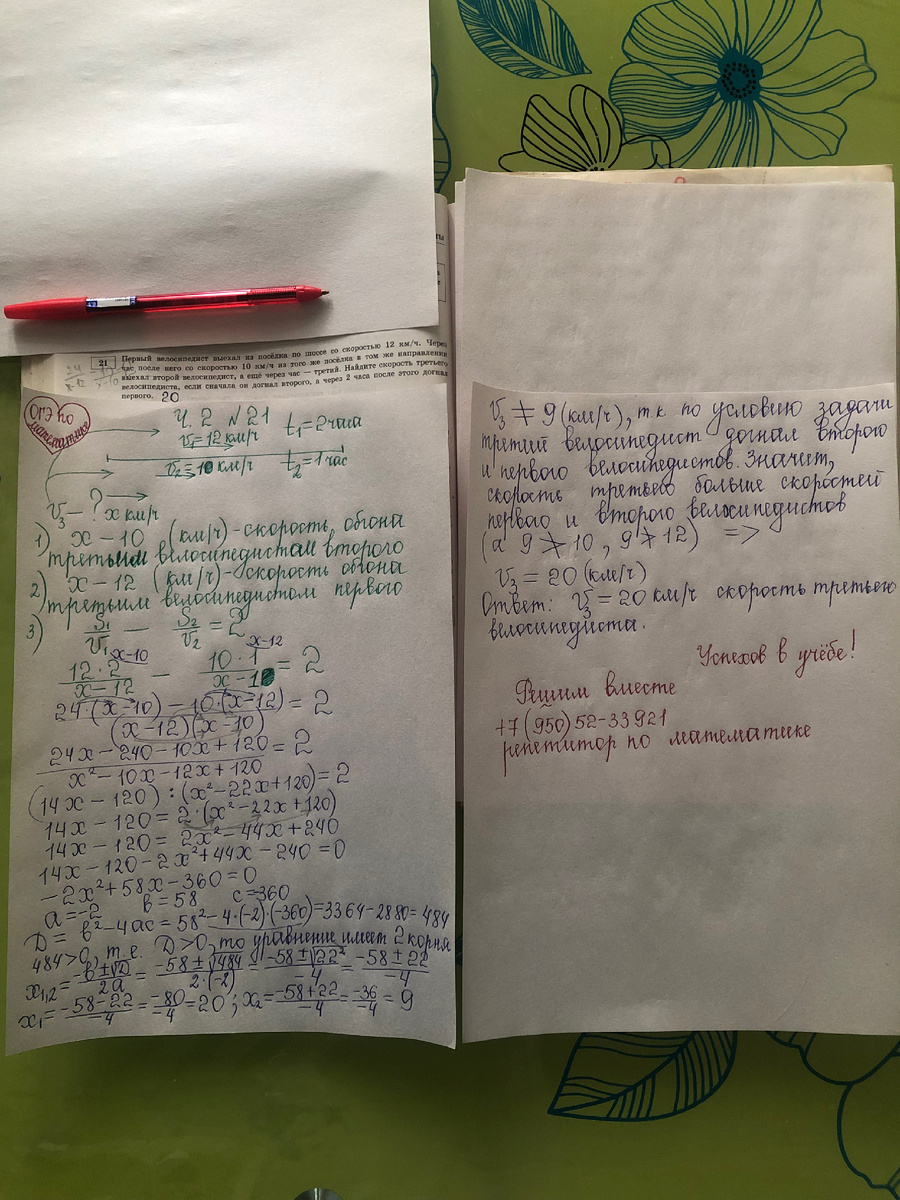 21 Первый велосипедист выехал из посёлка по шоссе со скоростью 12 км/ч. Через
час после него со скоростью 10 км/ч из того же посёлка в том же направлении
выехал второй велосипедист, а ещё через час — третий. Найдите скорость третьего
велосипедиста, если сначала он догнал второго, а через 2 часа после этого догнал
первого. 20
ОГЭ по
математике
Ч. 2 №21
V₁=12 км/ч t₁=2часа
V₂=10 км/ч t₂=1час
V₃ – ? x км/ч
1) x – 10 (км/ч) – скорость, обгона
третьим велосипедистом второго
2) x – 12 (км/ч) – скорость обгона
третьим велосипедистом первого
3) S₁/V₁ – S₂/V₂ = 2
x–10 x–12
12·2/(x–12) – 10·1/(x–10) = 2
(24·(x–10) – 10·(x–12))/((x–12)(x–10)) = 2
(24x – 240 – 10x + 120)/(x² – 10x – 12x + 120) = 2
(14x – 120) : (x² – 22x + 120) = 2
14x – 120 = 2·(x² – 22x + 120)
14x – 120 = 2x² – 44x + 240
14x – 120 – 2x² + 44x – 240 = 0
–2x² + 58x – 360 = 0
a = –2 b = 58 c = –360
D = b² – 4ac = 58² – 4·(–2)·(–360) = 3364 – 2880 = 484
484 > 0, т.е. D > 0, то уравнение имеет 2 корня
x₁,₂ = (–b ± √D)/2a = (–58 ± √484)/(2·(–2)) = (–58 ± √22²)/–4 = (–58 ± 22)/–4
x₁ = (–58 – 22)/–4 = –80/–4 = 20; x₂ = (–58 + 22)/–4 = –36/–4 = 9
V₃ ≠ 9 (км/ч), т.к. по условию задачи
третий велосипедист догнал второго
и первого велосипедистов. Значит,
скорость третьего больше скоростей
первого и второго велосипедистов
(а 9 ≯ 10, 9 ≯ 12) =>
V₃ = 20 (км/ч)
Ответ: V₃ = 20 км/ч скорость третьего
велосипедиста.
Успехов в учёбе!
Решим вместе
+7(950)52-33921
репетитор по математике